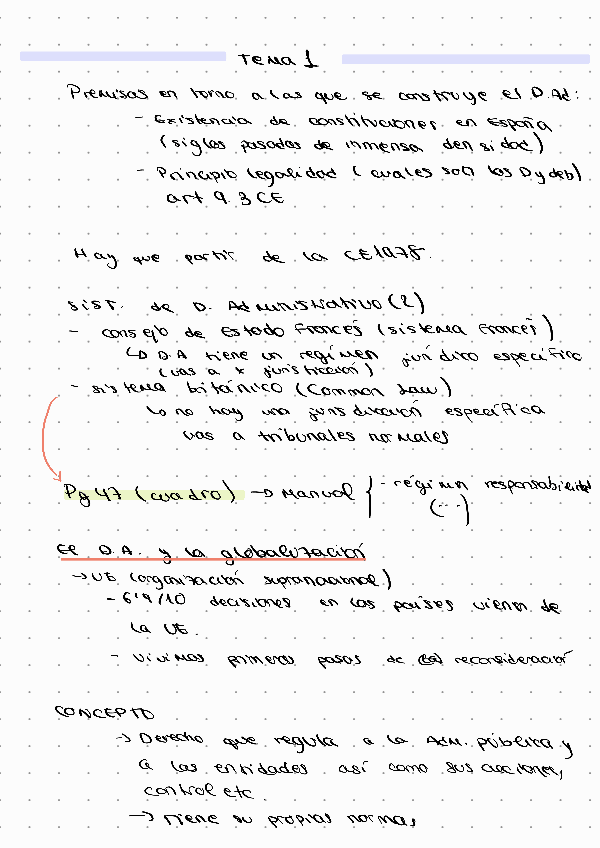 Tema 1
Premisas en torno a las que se construye el D.Ad:
- Existencia de constituciones en España
(siglos pasados de inmensa densidad)
- Principio legalidad (cuales son los D y deb)
art 9.3 CE
Hay que partir de la CE1978.
sist. de D. Administrativo (2)
- consejo de Estado Francés (sistema Francés)
↳ D.A tiene un regímen jurídico específico
(vas a * jurisdiccion)
- sistema británico (Common Law)
↳ no hay una jurisdicción específica
vas a tribunales normales
Pg 47 (cuadro) → Manual { - régimen responsabilidad
(...)
El D.A. y la globalización
→ UE (organización supranacional)
- 6'9/10 decisiones en los países vienen de
la UE.
- Vivimos primeros pasos de reconsideración
CONCEPTO
→ Derecho que regula a la Adm. pública y
a las entidades así como sus acciones,
control etc.
→ Tiene su propias normas,